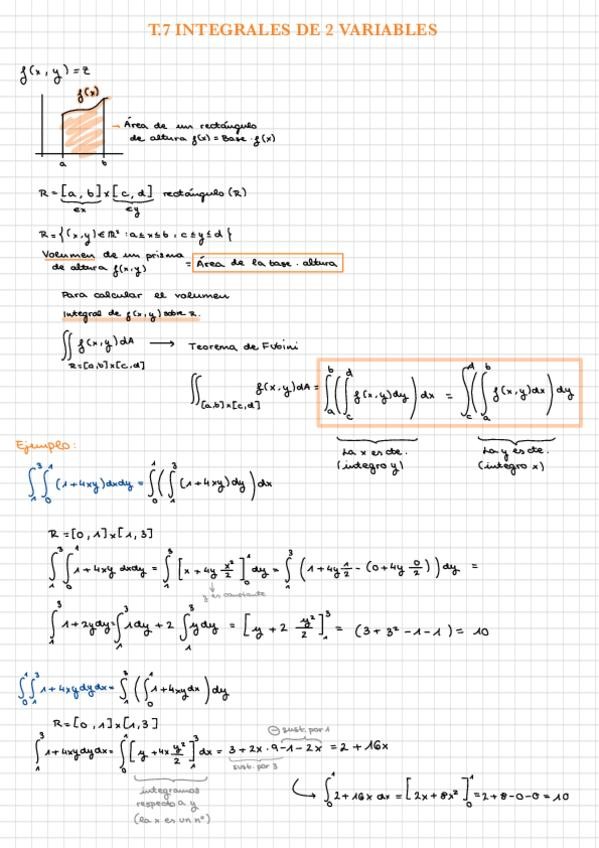 T.7 INTEGRALES DE 2 VARIABLES
f(x,y)=z
f(x)
→ Área de un rectángulo
de altura f(x) = Base · f(x)
a b
R = [a,b]x[c,d] rectángulo (R)
∈x ∈y
R = {(x,y)∈ℝ² : a≤x≤b, c≤y≤d}
Volumen de un prisma
de altura f(x,y) = Área de la base · altura
Para calcular el volumen
Integral de f(x,y) sobre R.
∬ f(x,y)dA → Teorema de Fubini
R=[a,b]x[c,d]
∬_[a,b]x[c,d] f(x,y)dA = ∫_a^b (∫_c^d f(x,y)dy) dx = ∫_c^d (∫_a^b f(x,y)dx) dy
La x es cte. La y es cte.
(integro y) (integro x)
Ejemplo:
∫_1^3 ∫_0^1 (1+4xy)dxdy = ∫_0^1 (∫_1^3 (1+4xy)dy) dx
R = [0,1]x[1,3]
∫_1^3 ∫_0^1 1+4xy dxdy = ∫_1^3 [x+4y x²/2]_0^1 dy = ∫_1^3 (1+4y 1/2 - (0+4y 0/2)) dy =
y es constante
∫_1^3 1+2y dy = ∫_1^3 1dy + 2 ∫_1^3 y dy = [y + 2 y²/2]_1^3 = (3+3²-1-1) = 10
∫_0^1 ∫_1^3 1+4xy dy dx = ∫_1^3 (∫_0^1 1+4xy dx) dy
R = [0,1]x[1,3]
⊖ sust. por 1
∫_1^3 1+4xy dy dx = ∫_0^1 [y+4x y²/2]_1^3 dx = 3+2x·9-1-2x = 2+16x
sust. por 3
integramos
respecto a y
(la x es un nº)
↪ ∫_0^1 2+16x dx = [2x+8x²]_0^1 = 2+8-0-0 = 10